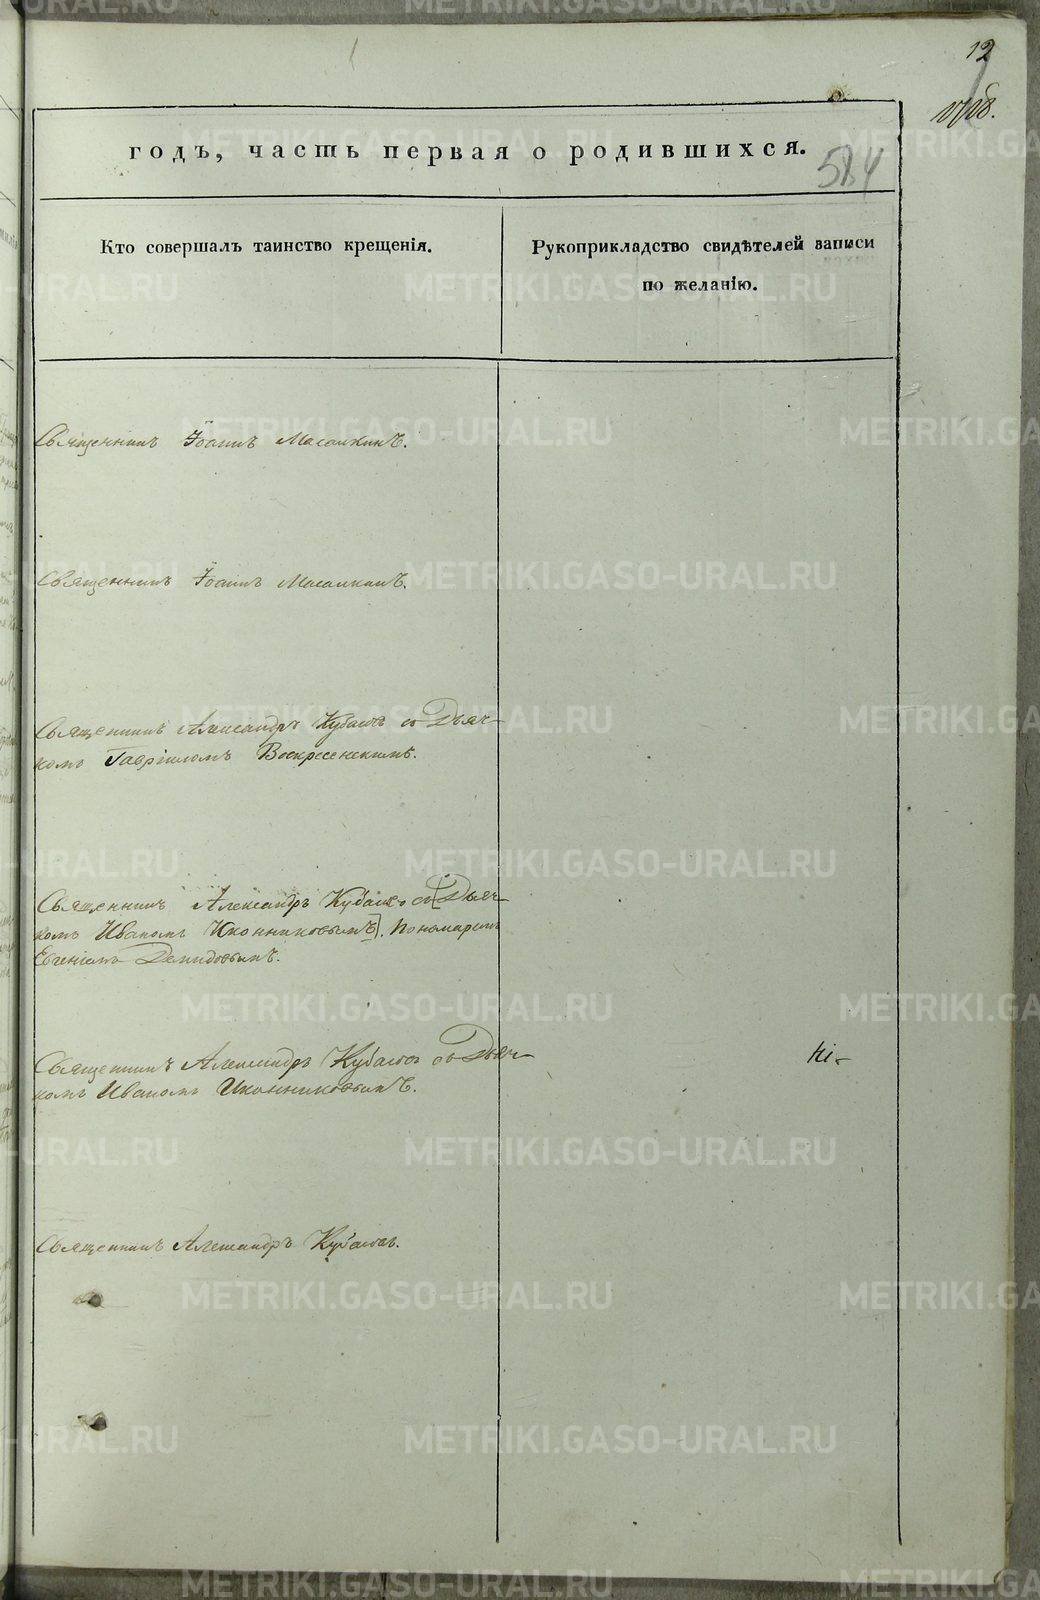 12
584
годъ, часть первая о родившихся.
Кто совершалъ таинство крещенія.
Рукоприкладство свидѣтелей записи
по желанію.
Священникъ Іоаннъ Масалкинъ.
Священникъ Іоаннъ Масалкинъ.
Священникъ Александръ Кубасовъ съ Дьяч-
комъ Гавріиломъ Воскресенскимъ.
Священникъ Александръ Кубасовъ съ [Дьяч-
комъ Иваномъ Иконниковымъ]. Пономаремъ
Евгеніемъ Демидовымъ.
Священникъ Александръ Кубасовъ съ Дьяч-
комъ Иваномъ Иконниковымъ.
Священникъ Александръ Кубасовъ.
METRIKI.GASO-URAL.RU